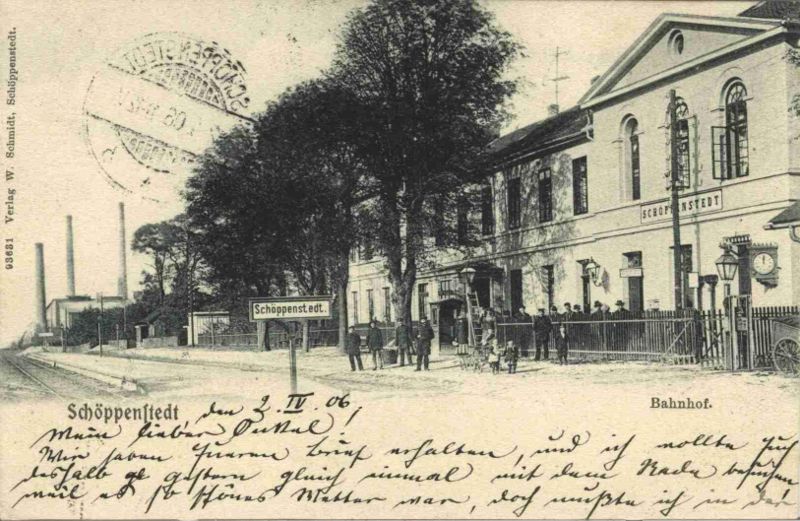 93631 Verlag W. Schmidt, Schöppenstedt.
SCHÖPPENSTEDT
SCHÖPPENSTEDT
Schöppenstedt.
Schöppenstedt,
Bahnhof.
den 2. IV. 06
Mein lieber Onkel!
Wir haben Eueren Brief erhalten, und ich wollte Euch
deshalb gestern gleich einmal mit dem Rade besuchen
weil es so schönes Wetter war, doch mußte ich in der